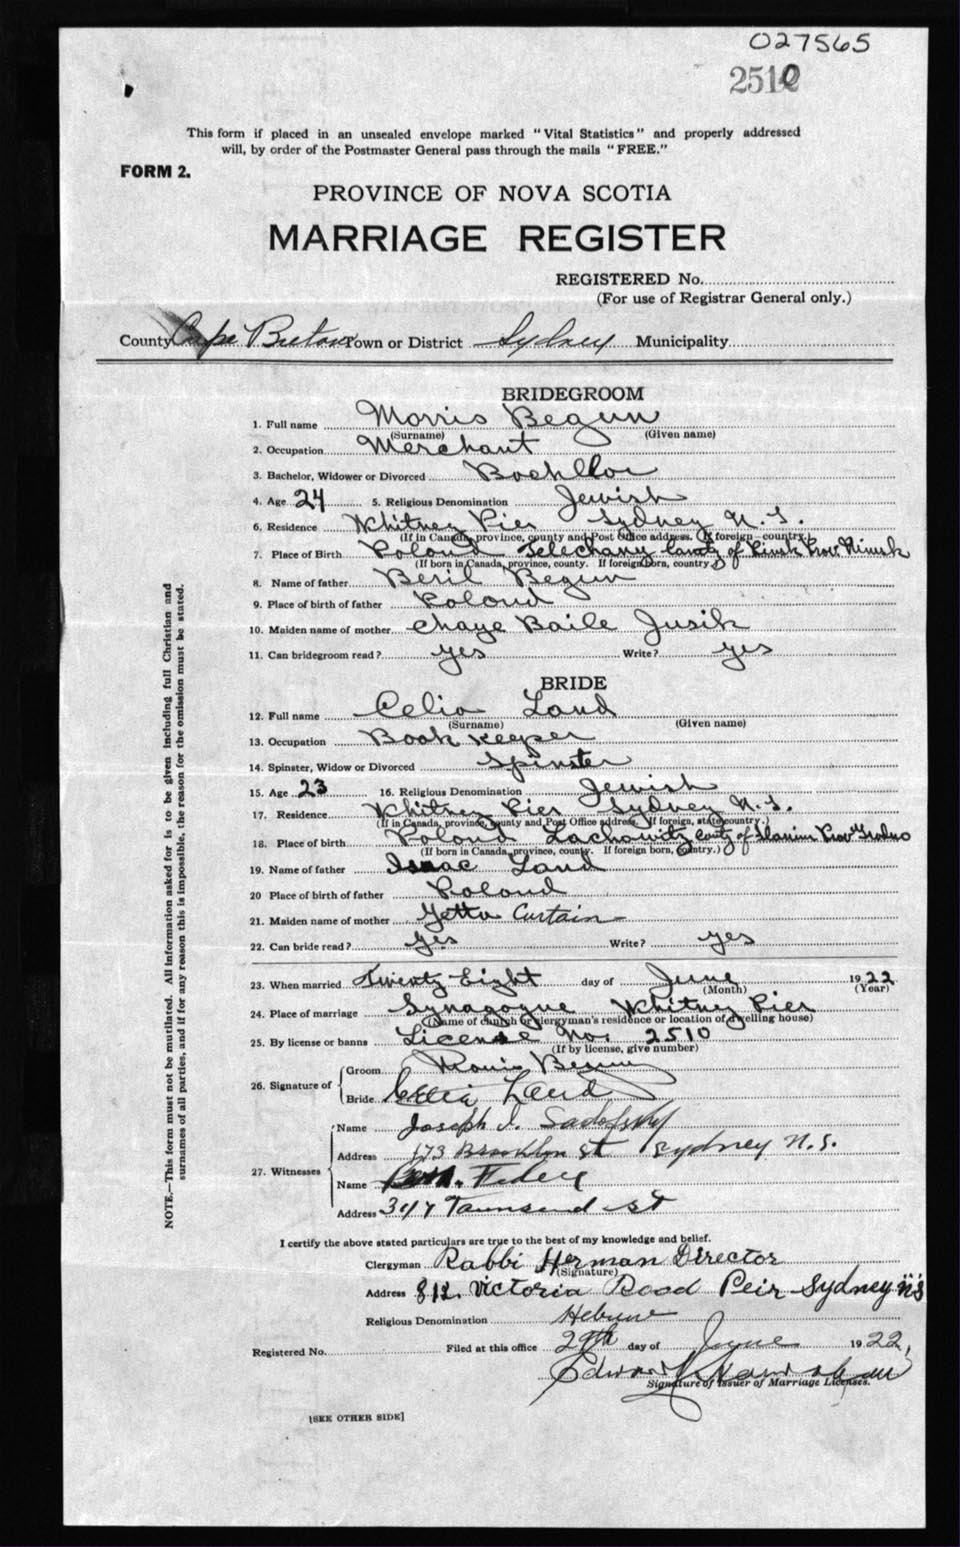 027565
2510
This form if placed in an unsealed envelope marked "Vital Statistics" and properly addressed
will, by order of the Postmaster General pass through the mails "FREE."
FORM 2.
PROVINCE OF NOVA SCOTIA
MARRIAGE REGISTER
REGISTERED No.
(For use of Registrar General only.)
County Cape Breton Town or District Sydney Municipality
BRIDEGROOM
1. Full name Morris Begun
(Surname) (Given name)
2. Occupation Merchant
3. Bachelor, Widower or Divorced Bachllor
4. Age 24 5. Religious Denomination Jewish
6. Residence Whitney Pier Sydney N.S.
(If in Canada, province, county and Post Office address. If foreign country.)
7. Place of Birth Poland Telechany County of Pinsk Prov Minsk
(If born in Canada, province, county. If foreign born, country.)
8. Name of father Beril Begun
9. Place of birth of father Poland
10. Maiden name of mother Chaye Baile Jusik
11. Can bridegroom read? yes Write? yes
BRIDE
12. Full name Celia Land
(Surname) (Given name)
13. Occupation Book Keeper
14. Spinster, Widow or Divorced Spinster
15. Age 23 16. Religious Denomination Jewish
17. Residence Whitney Pier Sydney N.S.
(If in Canada, province, county and Post Office address. If foreign, state country.)
18. Place of birth Poland Lachowitz county of Slanim Prov Grodno
(If born in Canada, province, county. If foreign born, country.)
19. Name of father Isaac Land
20 Place of birth of father Poland
21. Maiden name of mother Yetta Curtain
22. Can bride read? yes Write? yes
23. When married Twenty Eight day of June 1922
(Month) (Year)
24. Place of marriage Synagogue Whitney Pier
(Name of church or clergyman's residence or location of dwelling house)
25. By license or banns License No. 2510
(If by license, give number)
26. Signature of
Groom Morris Begun
Bride Celia Land
27. Witnesses
Name Joseph I. Sadofsky
Address 173 Brooklyn St Sydney N.S.
Name
Address 347 Townsend St
I certify the above stated particulars are true to the best of my knowledge and belief.
Clergyman Rabbi Herman Director
(Signature)
Address 812 Victoria Road Peir Sydney N.S.
Religious Denomination Hebrew
Registered No. Filed at this office 29th day of June 1922,
Signature of Issuer of Marriage Licenses.
[SEE OTHER SIDE]
NOTE.—This form must not be mutilated. All information asked for is to be given including full Christian and
surnames of all parties, and if for any reason this is impossible, the reason for the omission must be stated.